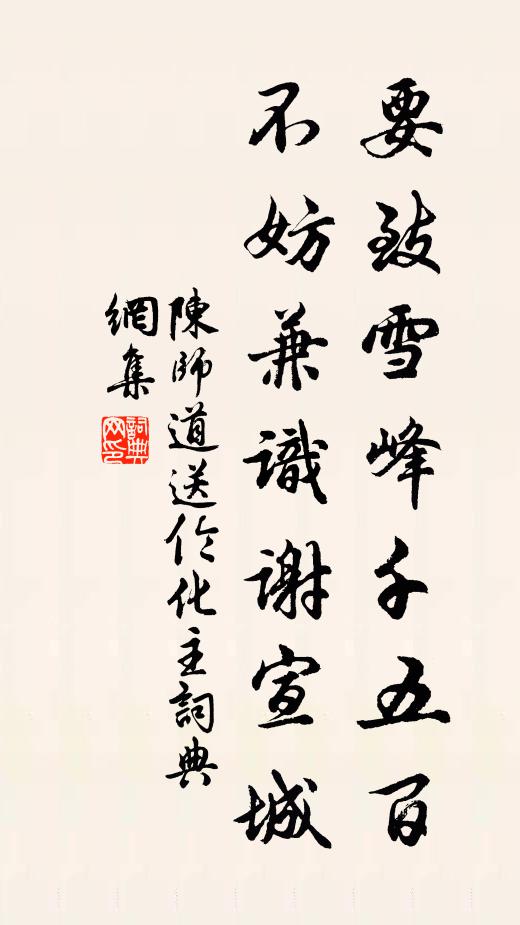 要致雪峰千五百
不妨兼識謝宣城
陳師道送伦化主詞典
網集
詞典网印